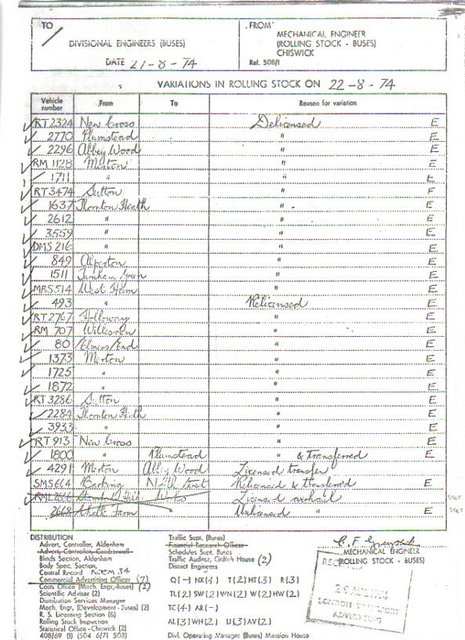 TO
FROM
DIVISIONAL ENGINEERS (BUSES)
MECHANICAL ENGINEER
(ROLLING STOCK - BUSES)
CHISWICK
DATE 21-8-74
Ref. 508/1
VARIATIONS IN ROLLING STOCK ON 22-8-74
Vehicle number From To Reason for variation
RT 2324 New Cross Delicensed E
2770 Plumstead " E
2296 Abbey Wood " E
RM 1128 Merton " E
1711 " " E
RT 3474 Sutton " E
1637 Thornton Heath " E
2612 " " E
3559 " " E
DMS 216 " " E
849 Alperton " E
1511 Turnham Green " E
MBS 514 West Ham " E
493 " Relicensed E
RT 2767 Holloway " E
RM 707 Willesden " E
80 Elmers End " E
1373 Merton " E
1725 " " E
1872 " " E
RT 3286 Sutton " E
2284 Thornton Hth " E
3933 " " E
RT 913 New Cross " E
1800 " Plumstead " & Transferred E
4291 Merton Abbey Wood Licensed transfer E
SMS 664 Barking Relicensed & transferred E
RML Licensed
2668 Chalk Farm Unlicensed " E
DISTRIBUTION
Advert. Controller, Aldenham
Advert. Controller, Camberwell
Blinds Section, Aldenham
Body Spec. Section,
Central Record
Commercial Advertising Officer (7)
Costs Office (Mech. Engr. Buses) (2)
Scientific Adviser (2)
Distribution Services Manager
Mech. Engr. (Development - Buses) (2)
R. S. Licensing Section (6)
Rolling Stock Inspection
Statistical Office - Chiswick (2)
408/69 (1) (504 6/71 508)
Traffic Supt. (Buses)
Financial Research Officer
Schedules Supt. Buses
Traffic Auditor, Griffith House (2)
District Engineers
Div. Operating Manager (Buses) Mansion House
MECHANICAL ENGINEER
(ROLLING STOCK - BUSES)
LONDON TRANSPORT
ADVERTISING